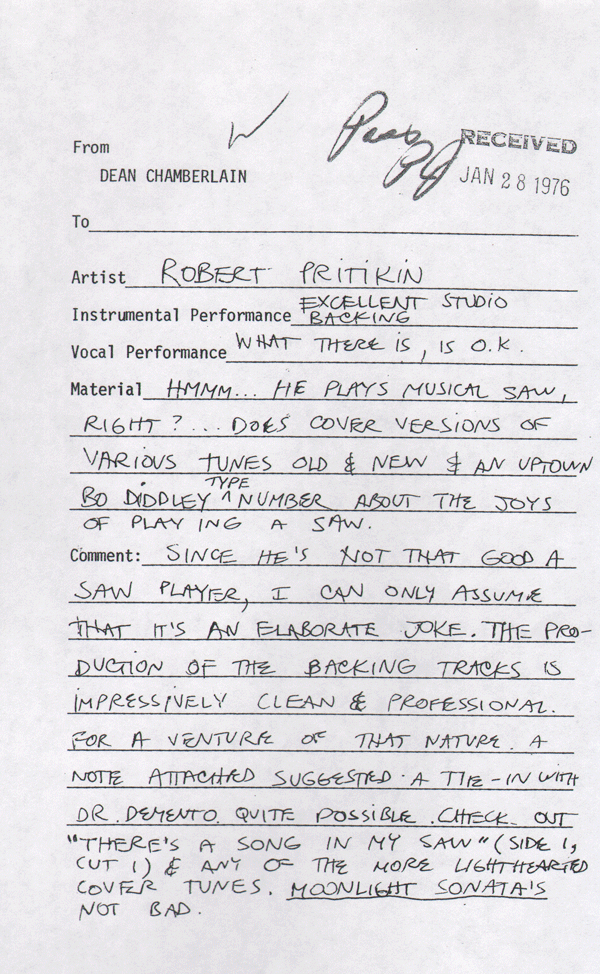 Pass
RECEIVED
JAN 28 1976
From
DEAN CHAMBERLAIN
To
Artist ROBERT PRITIKIN
Instrumental Performance EXCELLENT STUDIO
BACKING
Vocal Performance WHAT THERE IS, IS O.K.
Material HMMM... HE PLAYS MUSICAL SAW,
RIGHT?... DOES COVER VERSIONS OF
VARIOUS TUNES OLD & NEW & AN UPTOWN
BO DIDDLEY ^TYPE NUMBER ABOUT THE JOYS
OF PLAYING A SAW.
Comment: SINCE HE'S NOT THAT GOOD A
SAW PLAYER, I CAN ONLY ASSUME
THAT IT'S AN ELABORATE JOKE. THE PRO-
DUCTION OF THE BACKING TRACKS IS
IMPRESSIVELY CLEAN & PROFESSIONAL.
FOR A VENTURE OF THAT NATURE. A
NOTE ATTACHED SUGGESTED A TIE-IN WITH
DR. DEMENTO. QUITE POSSIBLE. CHECK OUT
"THERE'S A SONG IN MY SAW" (SIDE 1,
CUT 1) & ANY OF THE MORE LIGHTHEARTED
COVER TUNES. MOONLIGHT SONATA'S
NOT BAD.